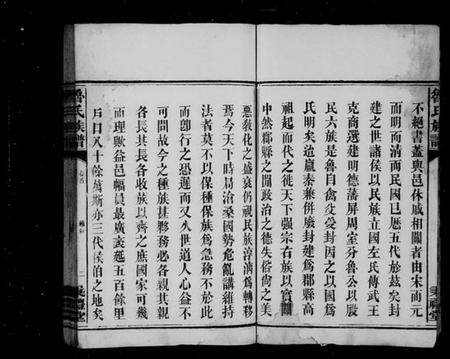 魯氏族譜
不絕書蓋與邑休戚相關者由宋而元
而明而清而民國已歷五代於茲矣封
建之世諸侯以民族立國左氏傳武王
克商選建明德藩屏周室分魯公以殷
民六族是魯自禽父受封因之以國為
氏明矣迨嬴秦兼併廢封建為郡縣高
祖起而代之徙天下強宗右族以實關
中然郡縣之間政治之德失俗尚之美
惡敎化之盛衰仍視民族淳漓為轉移
焉今天下時局滄桑國勢危亂講維持
法者莫不以保種保族為急務不於此
而卽行之恐遲而又久世道人心益不
可問故今之種族甚夥務必各親其親
各長其長各收族以齊之庶國家可幾
而理歟益邑幅員最廣袤延五百餘里
戶口八十餘萬斯亦三代侯伯之地矣
魯氏族譜
卷首
二
堂